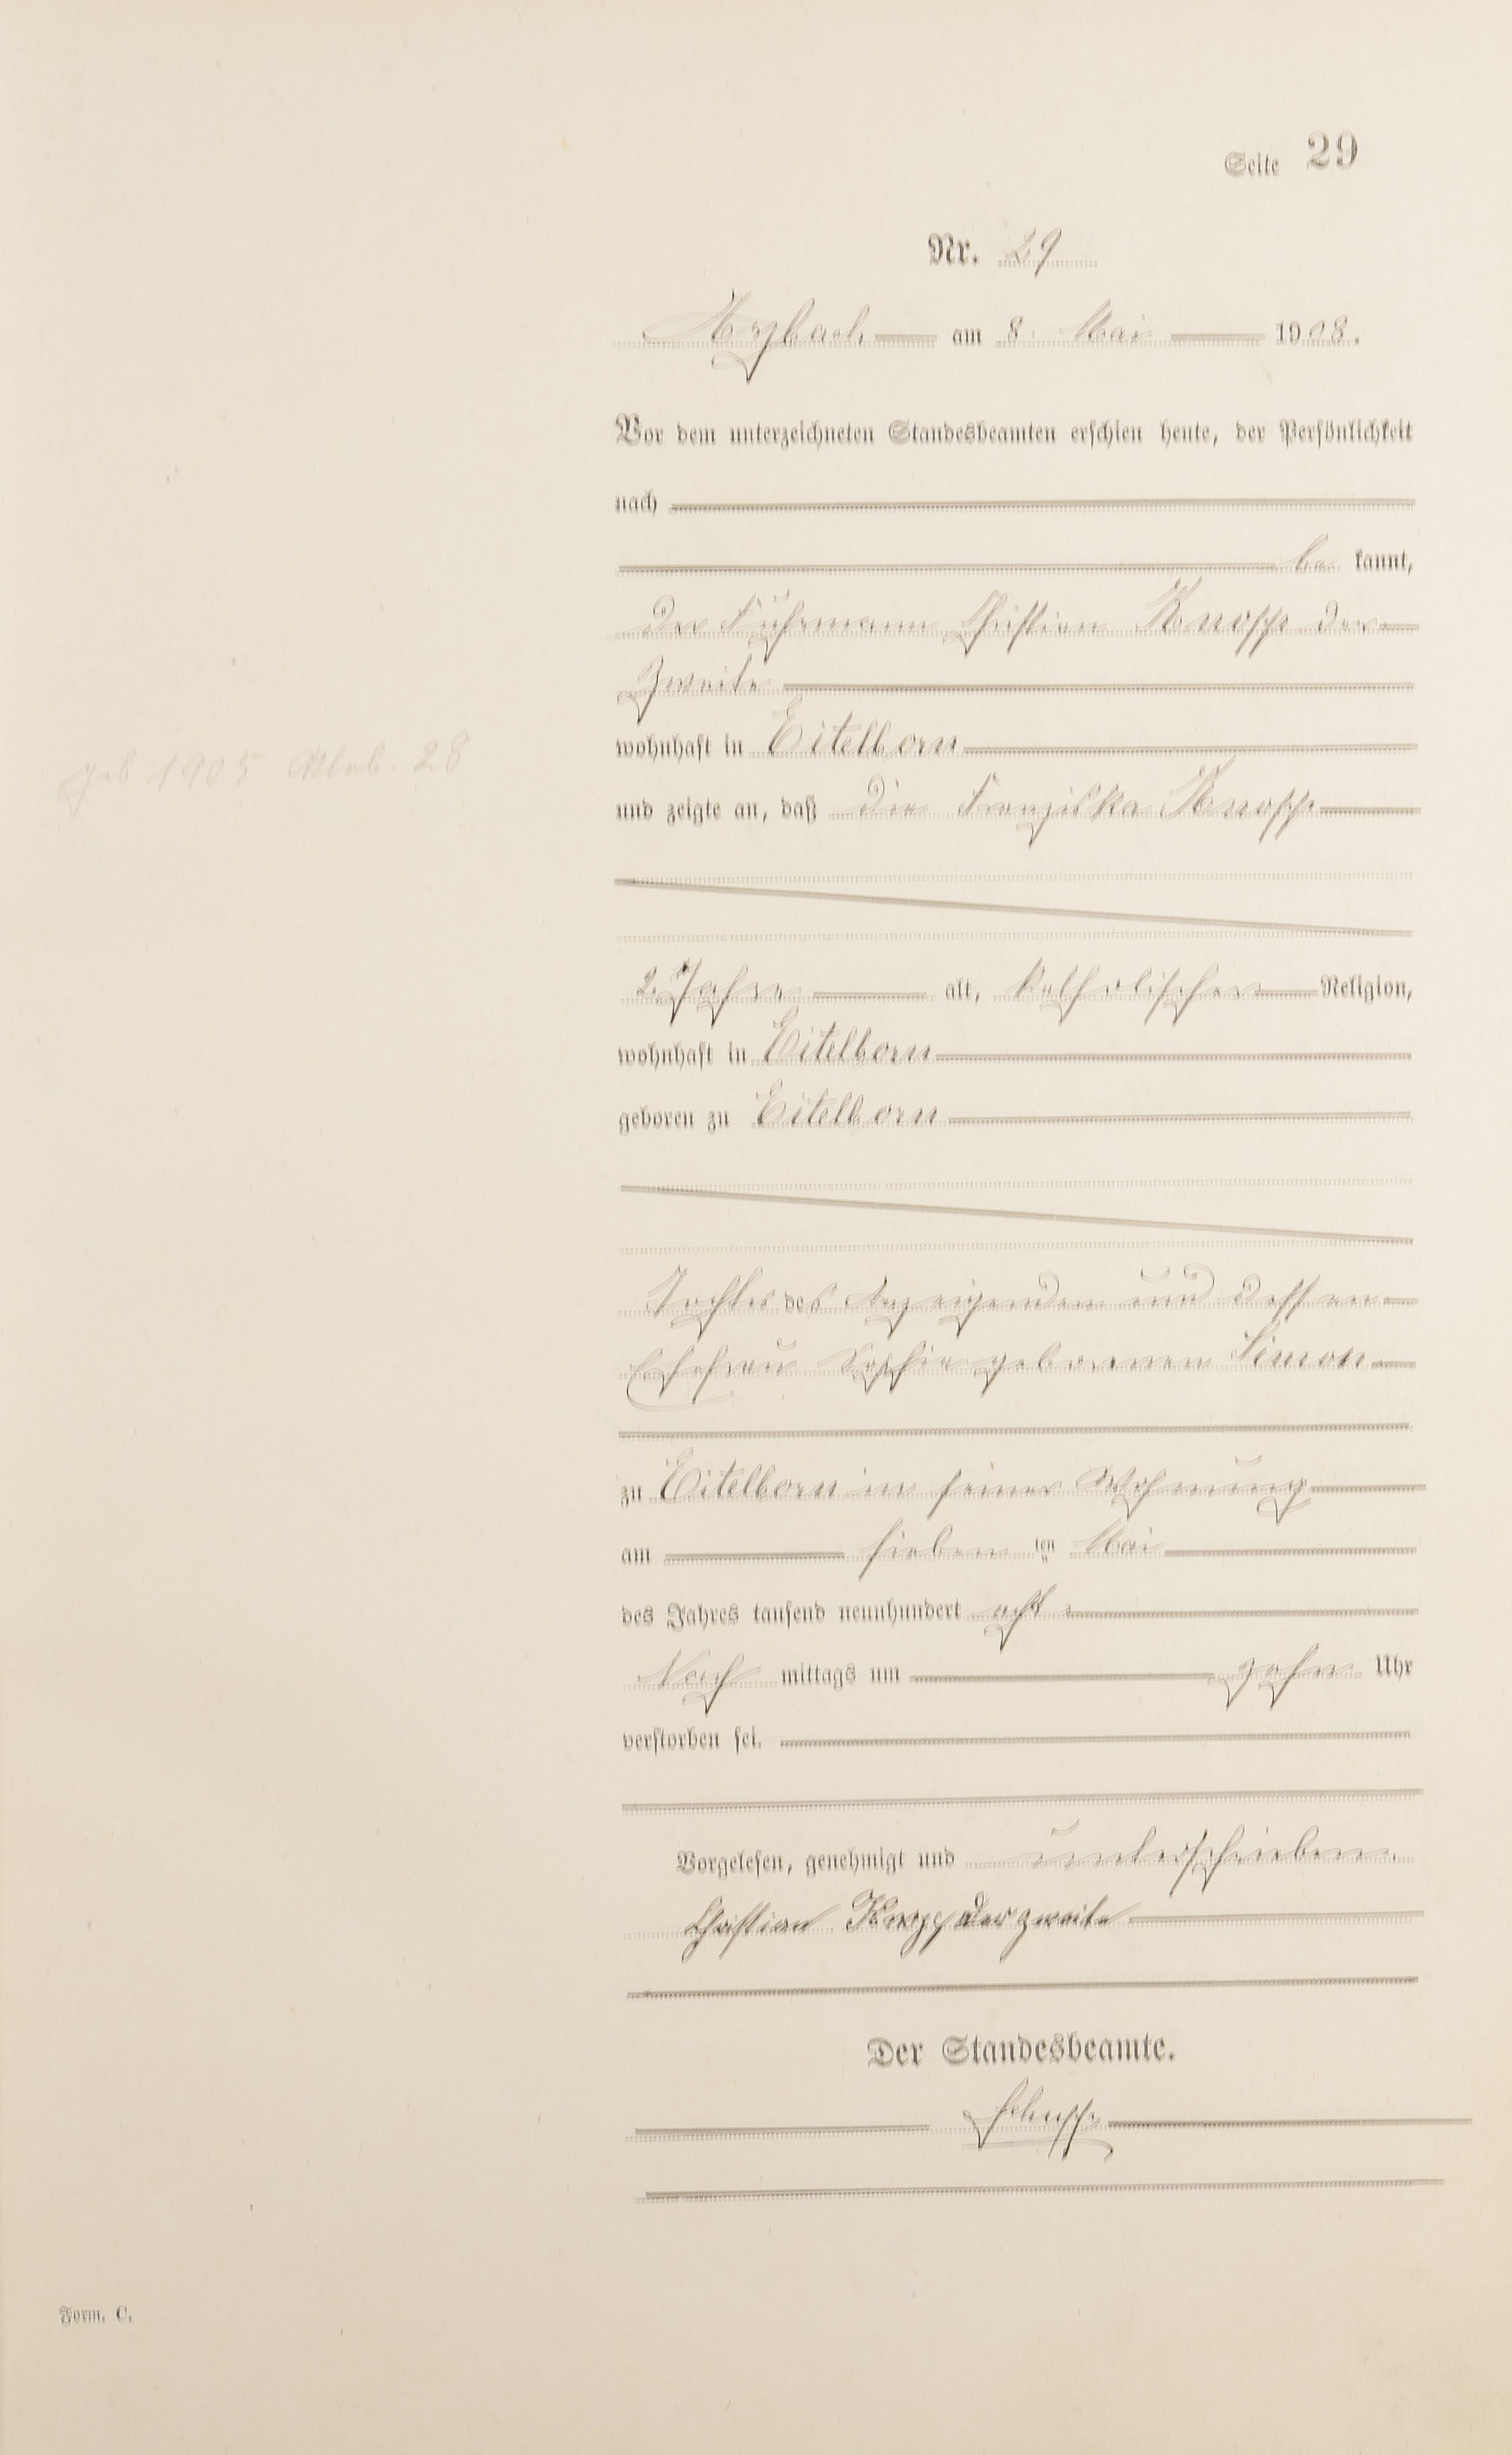 Seite 29
Nr. 29
Arzbach am 8. Mai 1908.
Vor dem unterzeichneten Standesbeamten erschien heute, der Persönlichkeit
nach
be kannt,
der Fuhrmann Christian Knopp der
Zweite
wohnhaft in Eitelborn
geb 1905 No. 28
und zeigte an, daß die Franziska Knopp
2 Jahre alt, katholischer Religion,
wohnhaft in Eitelborn
geboren zu Eitelborn
Tochter des Anzeigenden und dessen
Ehefrau Sophie geborenen Simon
zu Eitelborn in seiner Wohnung
am sieben ten Mai
des Jahres tausend neunhundert acht
Nach mittags um zehn Uhr
verstorben sei.
Vorgelesen, genehmigt und unterschrieben.
Christian Knopp der zweite
Der Standesbeamte.
Form. C.